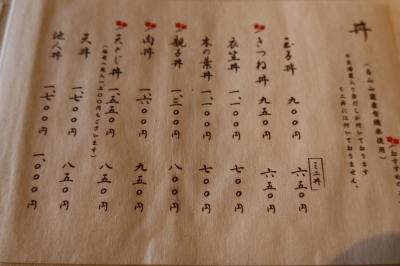 丼
おすすめの
玉子丼 九〇〇円 六五〇円
ミニ丼
きつね丼 九五〇円 六五〇円
衣笠丼 一、一〇〇円 七〇〇円
木の葉丼 一、一〇〇円 七〇〇円
親子丼 一、三〇〇円 八〇〇円
肉丼 一、六〇〇円 九五〇円
天とじ丼 一、五五〇円 八五〇円
天丼 一、七〇〇円 八五〇円
他人丼 一、七〇〇円 一、〇〇〇円